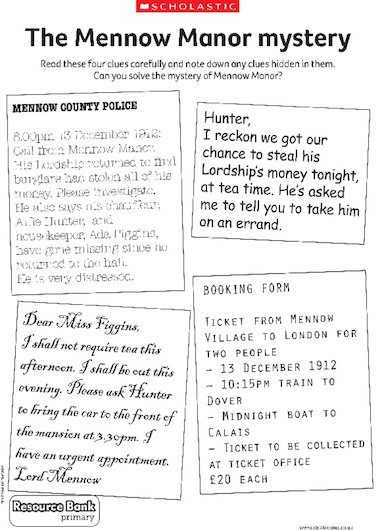 SCHOLASTIC
The Mennow Manor mystery
Read these four clues carefully and note down any clues hidden in them.
Can you solve the mystery of Mennow Manor?
MENNOW COUNTY POLICE
8.00pm 13 December 1912:
Call from Mennow Manor.
His Lordship returned to find
burglars had stolen all of his
money. Please investigate.
He also says his chauffeur,
Hunter, and
housekeeper, Ada Figgins,
have gone missing since he
returned to the hall.
He is very distressed.
Hunter,
I reckon we got our
chance to steal his
Lordship's money tonight,
at tea time. He's asked
me to tell you to take him
on an errand.
Dear Miss Figgins,
I shall not require tea this
afternoon. I shall be out this
evening. Please ask Hunter
to bring the car to the front of
the mansion at 3.30pm. I
have an urgent appointment.
Lord Mennow
BOOKING FORM
TICKET FROM MENNOW
VILLAGE TO LONDON FOR
TWO PEOPLE
- 13 DECEMBER 1912
- 10:15PM TRAIN TO
DOVER
- MIDNIGHT BOAT TO
CALAIS
- TICKET TO BE COLLECTED
AT TICKET OFFICE
£20 EACH
Resource Bank
primary